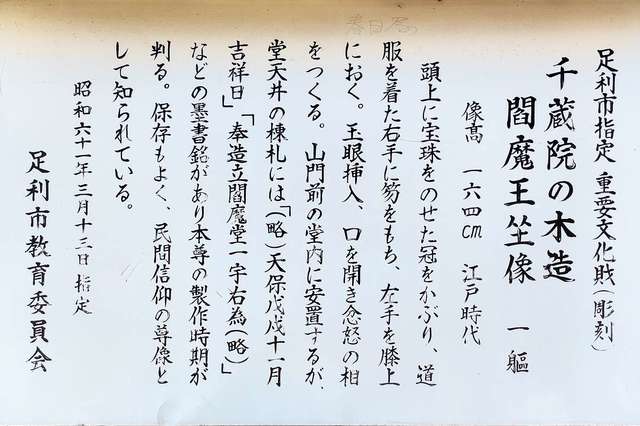 足利市指定 重要文化財(彫刻)
千蔵院の木造
閻魔王坐像 一軀
像高 一六四cm 江戸時代
頭上に宝珠をのせた冠をかぶり、道
服を着た右手に笏をもち、左手を膝上
におく。玉眼挿入、口を開き忿怒の相
をつくる。山門前の堂内に安置するが、
堂天井の棟札には「(略)天保戊戌十一月
吉祥日」「奉造立閻魔堂一宇右為(略)」
などの墨書銘があり本尊の製作時期が
判る。保存もよく、民間信仰の尊像と
して知られている。
昭和六十一年三月十三日 指定
足利市教育委員会